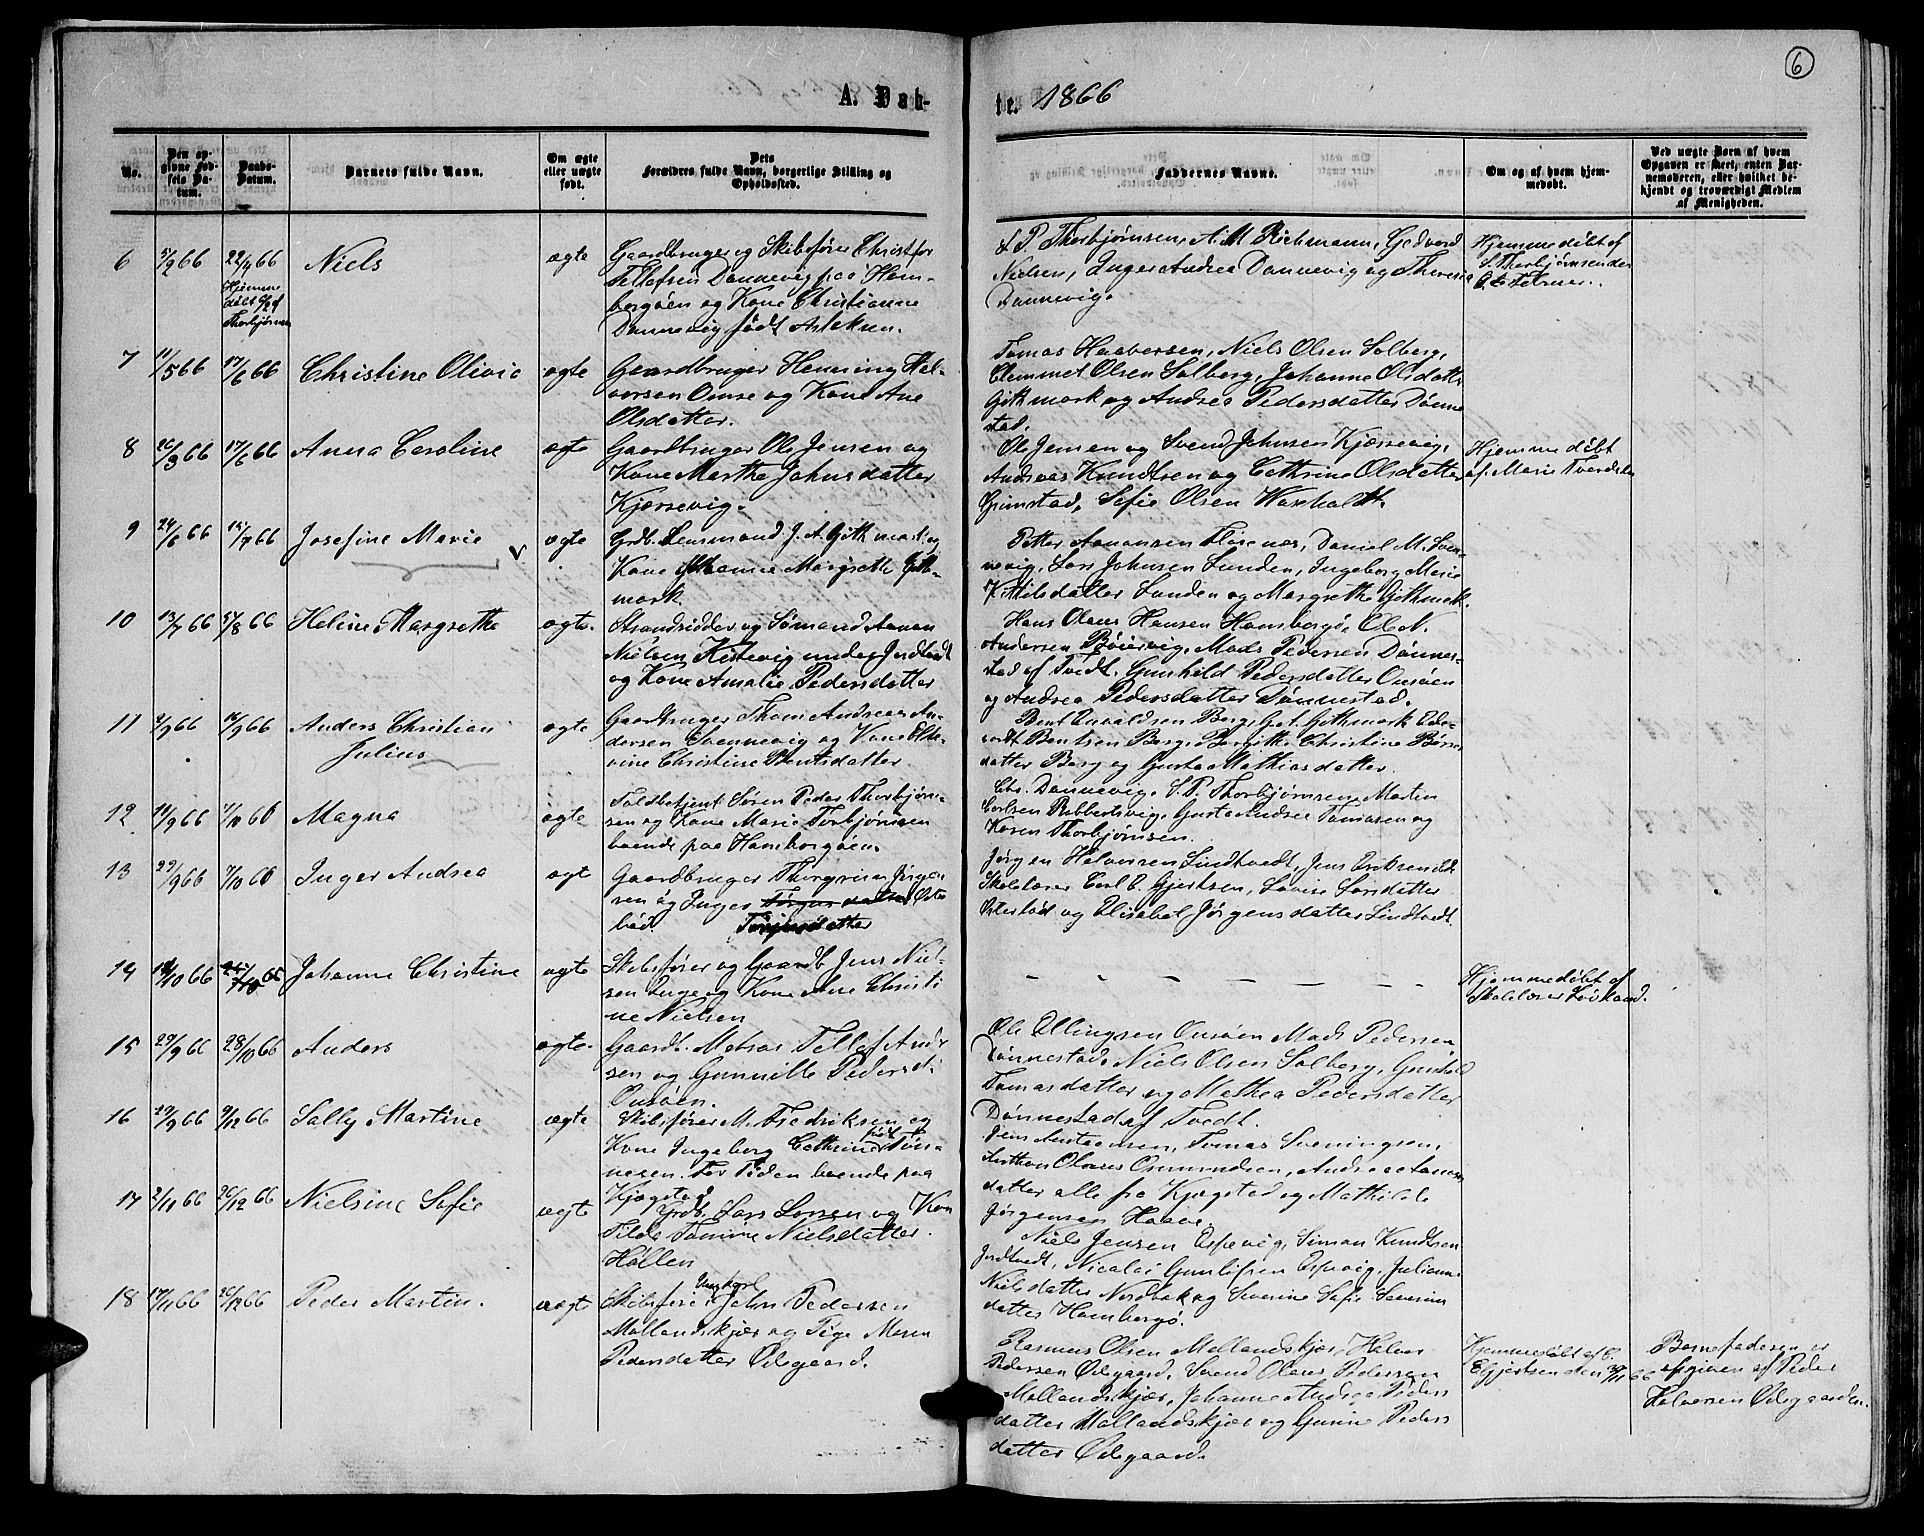 6
A. Døb-
te. 1866
No.
Den op-
givne Fød-
sels Da-
tum.
Daabs-
Datum.
Barnets fulde Navn.
Om ægte
eller uægte
født.
Dets
Forældres fulde Navn, borgerlige Stilling og
Opholdssted.
Faddernes Navne.
Om og af hvem hjem-
medøbt.
Ved uægte Børn af hvem
Opgaven er skeet, enten Bar-
nemoderen, eller hvilket be-
kjendt og troværdigt Medlem
af Menigheden.
6 5/2 66 22/4 66 Niels ægte
Hjemme
døbt 6/2 af
Thorbjørnsen
Gaardbruger og Skibsfører Christofer
Tellefsen Dannevig paa Hom-
borgøen og Kone Christianne
Dannevig født Aslaksen.
S. P. Thorbjørnsen, A. M. Richmann, Gedvard
Nielsen, Inger Andrea Dannevig og Theresia
Dannevig.
Hjemmedøbt af
S. Thorbjørnsen den
6te Februar.
7 11/5 66 17/6 66 Christine Olivia ægte
Gaardbruger Henning Hal-
vorsen Omre og Kone Ane
Olsdatter.
Tomas Haaversen, Niels Olsen Solberg,
Clemmet Olsen Solberg, Johanne Olsdatter
Githmark og Andrea Pedersdatter Dønne-
stad.
8 26/3 66 17/6 66 Anna Caroline ægte
Gaardbruger Ole Jensen og
Kone Marthe Johnsdatter
Kjørrevig.
Ole Jensen og Svend Johnsen Kjørrevig,
Andreas Knudtsen og Cathrine Olsdatter
Grimstad, Sofie Olsen Waxholdt.
Hjemmedøbt
af Marie
9 24/6 66 15/7 66 Josefine Marie ægte
Grdb. Lensmand J. A. Githmark og
Kone Johanne Margrethe Gith-
mark.
Petter Aanonsen Fløsenes, Daniel M. Sven-
nevig, Lars Johnsen Lunden, Ingeborg Marie
Nilsdatter Lunden og Margrethe Githmark.
10 13/7 66 5/8 66 Heline Margrethe ægte.
Strandsidder og Sømand Aanon
Nielsen Kistevig under Indtvedt
og Kone Amalie Pedersdatter
Hans Olaus Hansen Homborgø, Ole N.
Andersen Bøievig, Mads Pedersen Dønne-
stad af Tvedt. Gunhild Pedersdatter Ousøen
og Andrea Pedersdatter Dønnestad.
11 2/9 66 16/9 66 Anders Christian ægte
Julius
Gaardbruger Thom Andreas An-
dersen Svennevig og Kone El-
vine Christine Bentsdatter
Bent Osvaldsen Berg, G. A. Githmark Ede-
vardt Bentsen Berg, Bergithe Christine Børre-
datter Berg og Gusta Mathiasdatter.
12 11/9 66 7/10 66 Magna ægte
Toldbetjent Søren Peder Thorbjørn-
sen og Kone Marie Torbjørnsen
boende paa Homborgøen
Chr. Dannevig, S. P. Thorbjørnsen, Martin
Carlsen Ribbertsvig, Gusta Andrea Tomasen og
Karen Thorbjørnsen.
13 29/9 66 7/10 66 Inger Andrea ægte
Gaardbruger Thorgrim Jørgen-
sen og Inger Øster
hød.
Jørgen Halvorsen Lindtvedt, Jens Eriksen ibd.
Skolelærer Carl E. Gjertsen, Lovise Larsdatter
Østerhød og Elisabet Jørgensdatter Lindtvedt.
14 Johanne Christine ægte
Skibsfører og Gaardb. Jens Niel-
sen Inge og Kone Ane Christi
ne Nielsen
Hjemmedøbt af
Skolelærer Løvland.
15 29/9 66 28/10 66 Anders ægte.
Gaardb. Matros Tellef Andr
sen og Gunnille Pedersd.
Ousøen.
Ole Ellingsen Ousøen Mads Pedersen
Dønnestad, Niels Olsen Solberg, Gunhild
Tomasdatter og Mathea Pedersdatter
Dønnestad af Tvedt.
16 29/9 66 9/12 66 Sally Martine ægte
Skibsfører M. Fredriksen og
Kone Ingeborg Cathrine født Tøn-
nesen. For Tiden boende paa
Kjøgstad
Jens Antonsen, Tomas Sveningsen,
Anthon Olaus Osmundsen, Andrea Aanons
datter alle fra Kjøgstad og Mathilde
Jørgensen Haave.
17 2/11 66 26/12 66 Nielsine Sofie ægte
Grdb. Lars Larsen og Kone
Tilde Tomine Nielsdatter
Høllen
Niels Jensen Espevig, Simon Knudtsen
Indtvedt, Nicolai Gunlifsen Espevig, Juliane
Nielsdatter Nordbak og Severine Sofie Severin
datter Homborgø.
18 17/11 66 26/12 66 Peder Martin. uægte
Ungkarl
Skibsfører John Pedersen
Mollandskjær og Pige Maren
Pedersdatter Ødegaard.
Rasmus Olsen Mollandskjær, Halvor
Pedersen Ødegaard, Svend Olaus Pedersen
Mollandskjær, Johanne Andrea Peders
datter Mollandskjær og Gurine Peders
datter Ødegaard.
Hjemmedøbt af C.
E. Gjertsen den 30/11 66
Barnefaderen er
opgiven af Peder
Halvorsen Ødegaarden.